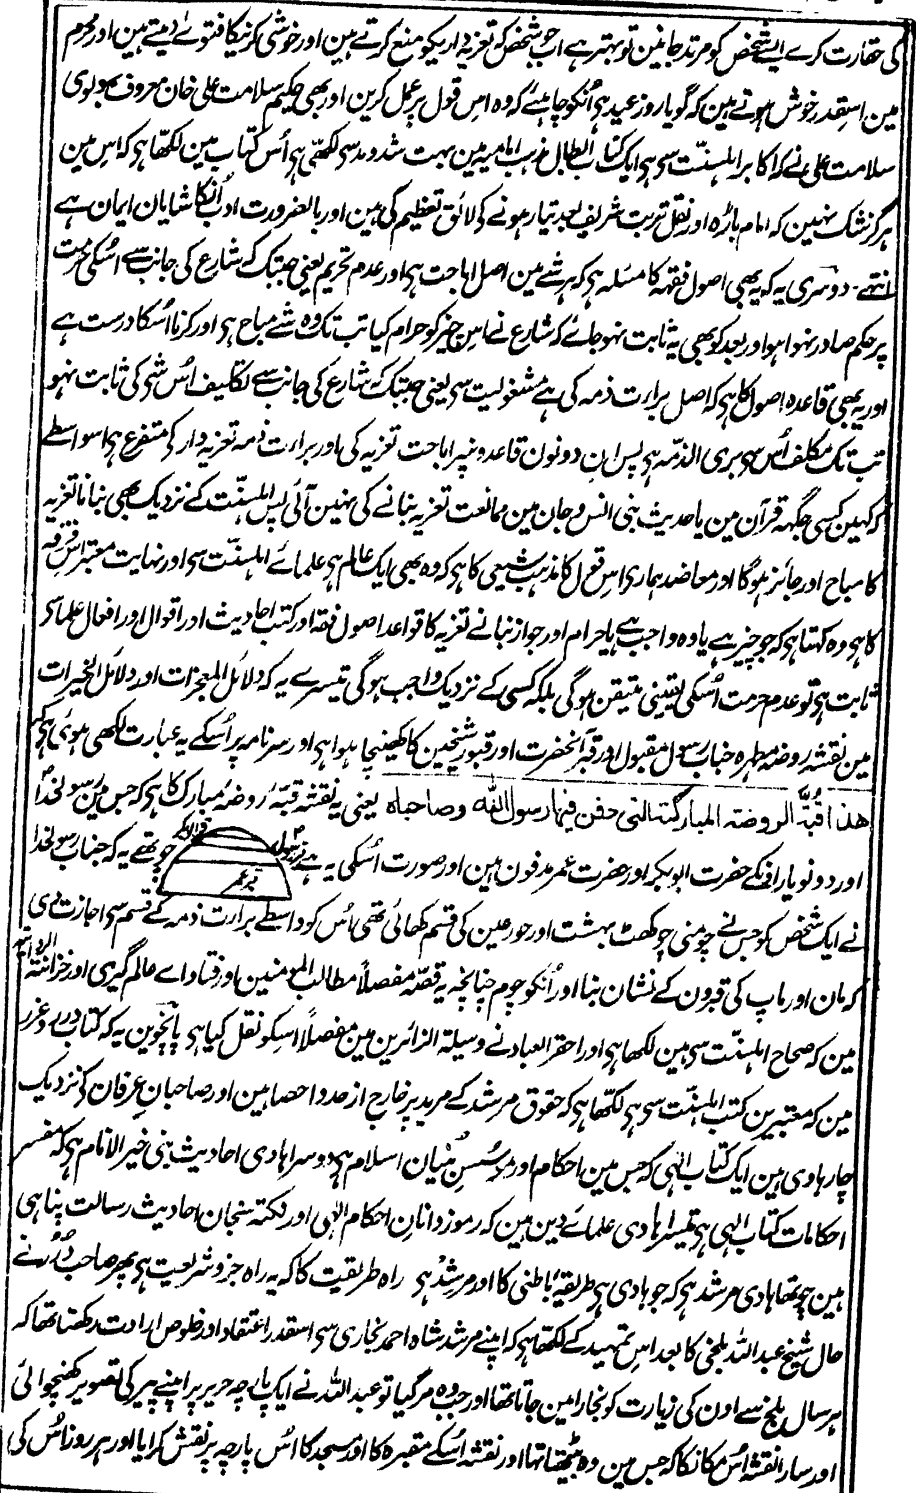 کی حقارت کرے ایسے شخص کو مرتد جانین تو بہتر ہے اب جو شخص کہ تعزیہ داریکو منع کرتے ہین اور خوشی کرنیکا فتوے دیتے ہین اور محرم
مین اسقدر خوش ہوتے ہین کہ گویا روز عید ہی اُنکو چاہیئے کہ وہ اس قول پر عمل کرین اور بھی حکیم سلامت علی خان معروف بمولوی
سلامت علی نے کہ اکابر اہلسنّت سے ہی ایک کتاب ابطال مذہب امامیہ مین بہت شد و مد سے لکھی ہی اُس کتاب مین لکھا ہی کہ اس مین
ہرگز شک نہین کہ امام باڑہ اور نقل تربت شریف بعد تیار ہونے کے لائق تعظیم کی ہین اور بالضرورت ادب اُنکا شایان ایمان ہے
انتہے۔ دوسری یہ کہ یہ بھی اصول فقہ کا مسئلہ ہی کہ ہر شے مین اصل اباحت ہی اور عدم تحریم یعنی جبتک کہ شارع کی جانب سے اُسکی حرمت
پر حکم صادر نہوا ہو اور بعد کو بھی یہ ثابت نہو جائے کہ شارع نے اس چیز کو حرام کیا تب تک وہ شے مباح ہی اور کرنا اُسکا درست ہے
اور یہ بھی قاعدہ اصول کا ہی کہ اصل برارت ذمہ کی ہے مشغولیت سے یعنی جبتک کہ شارع کی جانب سے تکلیف اُس شے کی ثابت نہو
تب تک مکلف اُس سے بری الذمہ ہی پس ان دونون قاعدونپر اباحت تعزیہ کی اور براءت ذمہ تعزیہ دار کی متفرع ہی اسواسطے
کہ کہین کسی جگہہ قرآن مین یا حدیث بنی انس و جان مین ممانعت تعزیہ بنانے کی نہین آئی پس اہلسنّت کے نزدیک بھی بنانا تعزیہ
کا مباح اور جائز ہوگا اور معاضد ہماری اس قول کا مذہب شیعی کا ہی کہ وہ بھی ایک عالم ہی علمائے اہلسنّت سے اور نہایت معتبر اس فرقہ
کا ہی وہ کہتا ہی کہ جو چیز ہے یا وہ واجب ہے یا حرام اور جواز بنانے تعزیہ کا قواعد اصول فقہ اور کتب احادیث اور اقوال اور افعال علما سے
ثابت ہی تو عدم حرمت اُسکی یقینی متیقن ہوگی بلکہ کسی کے نزدیک واجب ہوگی تیسرے یہ کہ دلائل المعجزات اور دلائل الخیرات
مین نقشہ روضہ مطہرہ جناب رسول مقبول اور قبر آنحضرت اور قبور شیخین کا کھینچا ہوا ہی اور سرنامہ پر اُسکے یہ عبارت لکھی ہوئی ہی کہ
ھذا قُبَّة الروضة المبارکة التی دفن فیھا رسول اللہ وصاحباہ یعنی یہ نقشہ قبّہ روضۂ مبارک کا ہی کہ جس مین رسولخدا
اور دونو یار انکے حضرت ابوبکر اور حضرت عمر مدفون ہین اور صورت اُسکی یہ ہے چوتھے یہ کہ جناب رسولخدا
قبر عمر
نے ایک شخص کو جس نے چومنی چوکھٹ بہشت اور حورعین کی قسم کھائی تھی اُس کو واسطے برارت ذمہ کے قسم سے اجازت دی
کہ مان اور باپ کی قبرون کے نشان بنا اور اُنکو چوم چنانچہ یہ قصّہ مفصلاً مطالب المومنین اور فتاواے عالم گیری اور خزانتہ
مین کہ صحاح اہلسنّت سے ہین لکھا ہی اور احقر العباد نے وسیلۃ الزائرین مین مفصلاً اسکو نقل کیا ہی پانچوین یہ کہ کتاب درر و غرر
مین کہ معتبرین کتب اہلسنّت سے ہی لکھا ہی کہ حقوق مرشد کے مرید پر خارج از حد و احصا ہین اور صاحبان عرفان کے نزدیک
چار ہادی ہین ایک کتاب الہی کہ جس مین احکام اور بنیان اسلام ہی دوسرا ہادی احادیث بنی خیر الانام ہی کہ مفسر
احکامات کتاب الہی ہی تیسرا ہادی علمائے دین ہین کہ رموز دانان احکام الٰہی اور نکتہ سنجان احادیث رسالت پناہی
ہین چوتھا ہادی مرشد ہی کہ جو ہادی ہی طریقۂ باطنی کا اور مرشد ہی راہ طریقت کا کہ یہ راہ جزو شریعت ہی پھر صاحب دُرر نے
حال شیخ عبد اللہ بلخی کا بعد اس تمہید کے لکھا ہی کہ اپنے مرشد شاہ احمد بخاری سے اسقدر اعتقاد اور خلوص ارادت رکھتا تھا کہ
ہر سال بلخ سے اون کی زیارت کو بخارا مین جاتا تھا اور جب وہ مر گیا تو عبد اللہ نے ایک پارچہ حریر پر اپنے پیر کی تصویر کھنچوائی
اور سارا نقشہ اُس مکانکا کہ جس مین وہ بیٹھتا تھا اور نقشہ اُسکے مقبرہ کا اور مسجد کا اُس پارچہ پر نقش کرایا اور ہر روز اُس کی